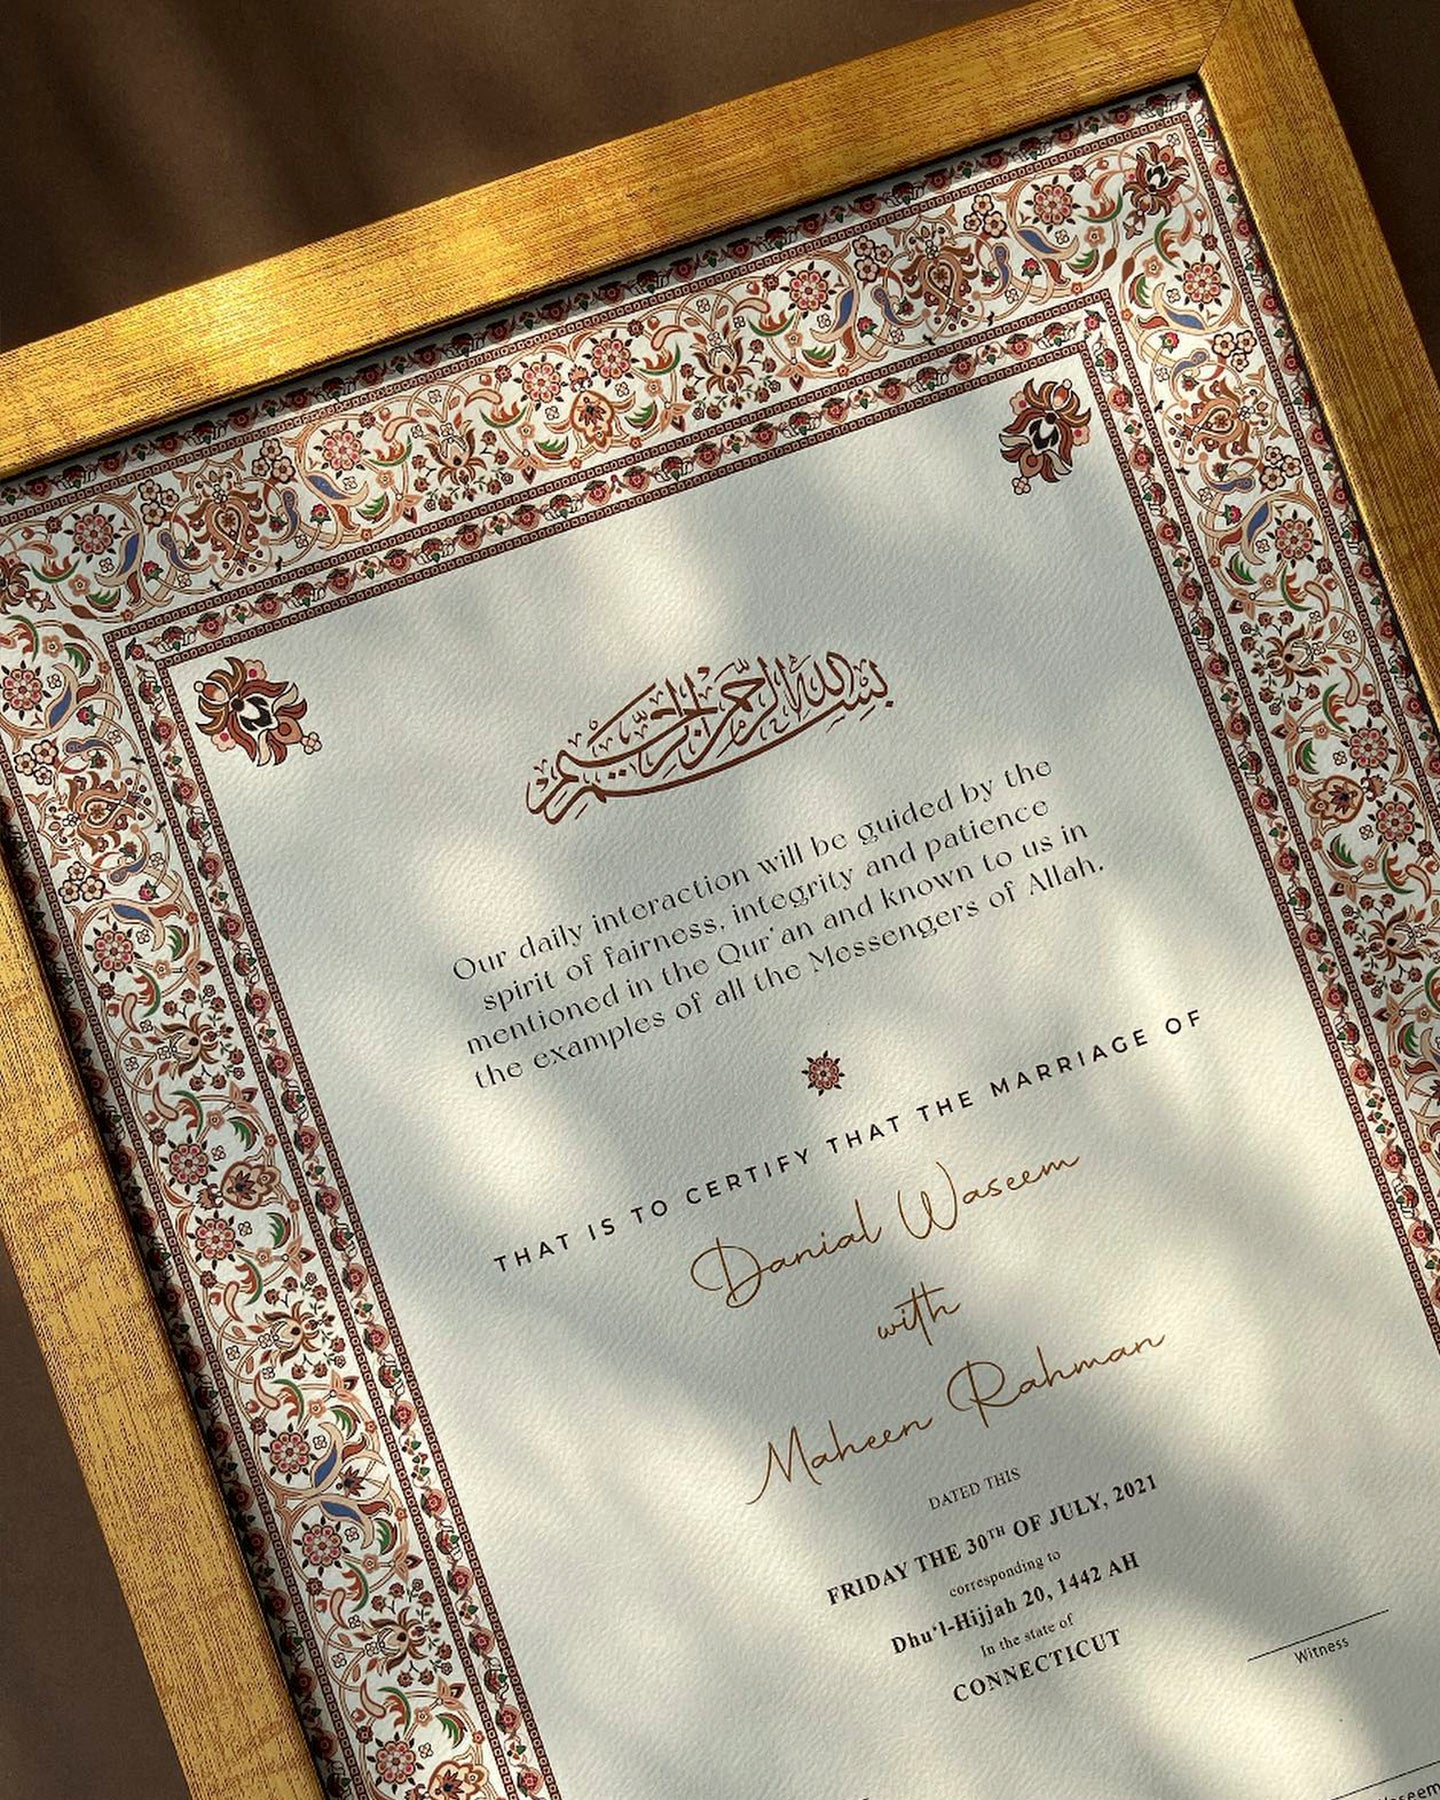 بسم الله الرحمن الرحيم
Our daily interaction will be guided by the
spirit of fairness, integrity and patience
mentioned in the Qur'an and known to us in
the examples of all the Messengers of Allah.
THAT IS TO CERTIFY THAT THE MARRIAGE OF
Danial Waseem
with
Maheen Rahman
DATED THIS
FRIDAY THE 30TH OF JULY, 2021
corresponding to
Dhu'l-Hijjah 20, 1442 AH
In the state of
CONNECTICUT
Witness
Waseem